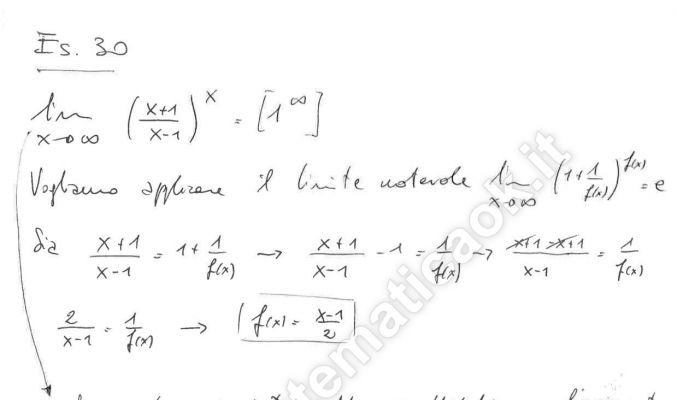 Es. 30
lim x→∞ (x+1/x-1)^x = [1^∞]
Vogliamo applicare il limite notevole lim x→∞ (1+1/f(x))^f(x) = e
Sia x+1/x-1 = 1+1/f(x) → x+1/x-1 - 1 = 1/f(x) → x+1-x+1/x-1 = 1/f(x)
2/x-1 = 1/f(x) → f(x) = x-1/2
tematicaok.it